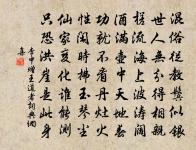 混俗從教鬢似銀
世人無分得相親
槎流海上波濤闊
酒滿壺中天地春
功就不看丹灶火
性閑時拂玉琴塵
仙家變化誰能測
只恐洪崖是此身
李中贈王道者詞典網
集